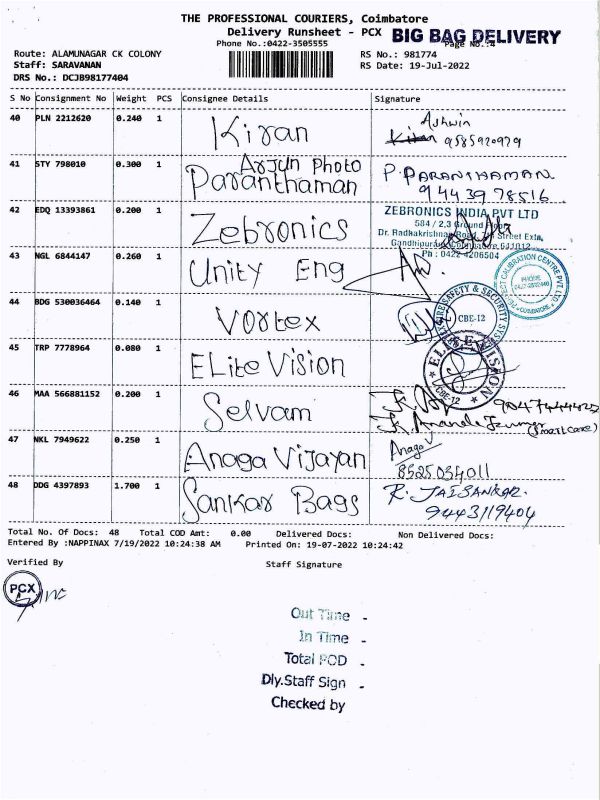 THE PROFESSIONAL COURIERS, Coimbatore
Delivery Runsheet - PCX BIG BAG DELIVERY
Phone No.:0422-3505555 Page No.:4
Route: ALAMUNAGAR CK COLONY RS No.: 981774
Staff: SARAVANAN RS Date: 19-Jul-2022
DRS No.: DCJB98177404
S No Consignment No Weight PCS Consignee Details Signature
40 PLN 2212620 0.240 1 Kiran Ashwin
9585920929
41 STY 798010 0.300 1 Arjun Photo
Paranthaman P. PARANTHAMAN.
9443978516
42 EDQ 13393861 0.200 1 Zebronics ZEBRONICS INDIA PVT LTD
584 / 2,3 Ground Floor
Dr. Radhakrishnan Road, Street Extn,
Gandhipuram, Coimbatore-641012
Ph : 0422-4206504
43 NGL 6844147 0.260 1 Unity Eng
44 BDG 530036464 0.140 1 Vortex FIRE SAFETY & SECURITY SYS CBE-12
45 TRP 7778964 0.080 1 ELite Vision ELITE VISION CBE-12
46 MAA 566881152 0.200 1 Selvam
47 NKL 7949622 0.250 1 Anaga Vijayan Anaga
8525034011
48 DDG 4397893 1.700 1 Sankar Bags R. JAISANKAR.
9443119404
Total No. Of Docs: 48 Total COD Amt: 0.00 Delivered Docs: Non Delivered Docs:
Entered By :NAPPINAX 7/19/2022 10:24:38 AM Printed On: 19-07-2022 10:24:42
Verified By Staff Signature
PCX
Out Time -
In Time -
Total POD -
Dly.Staff Sign -
Checked by